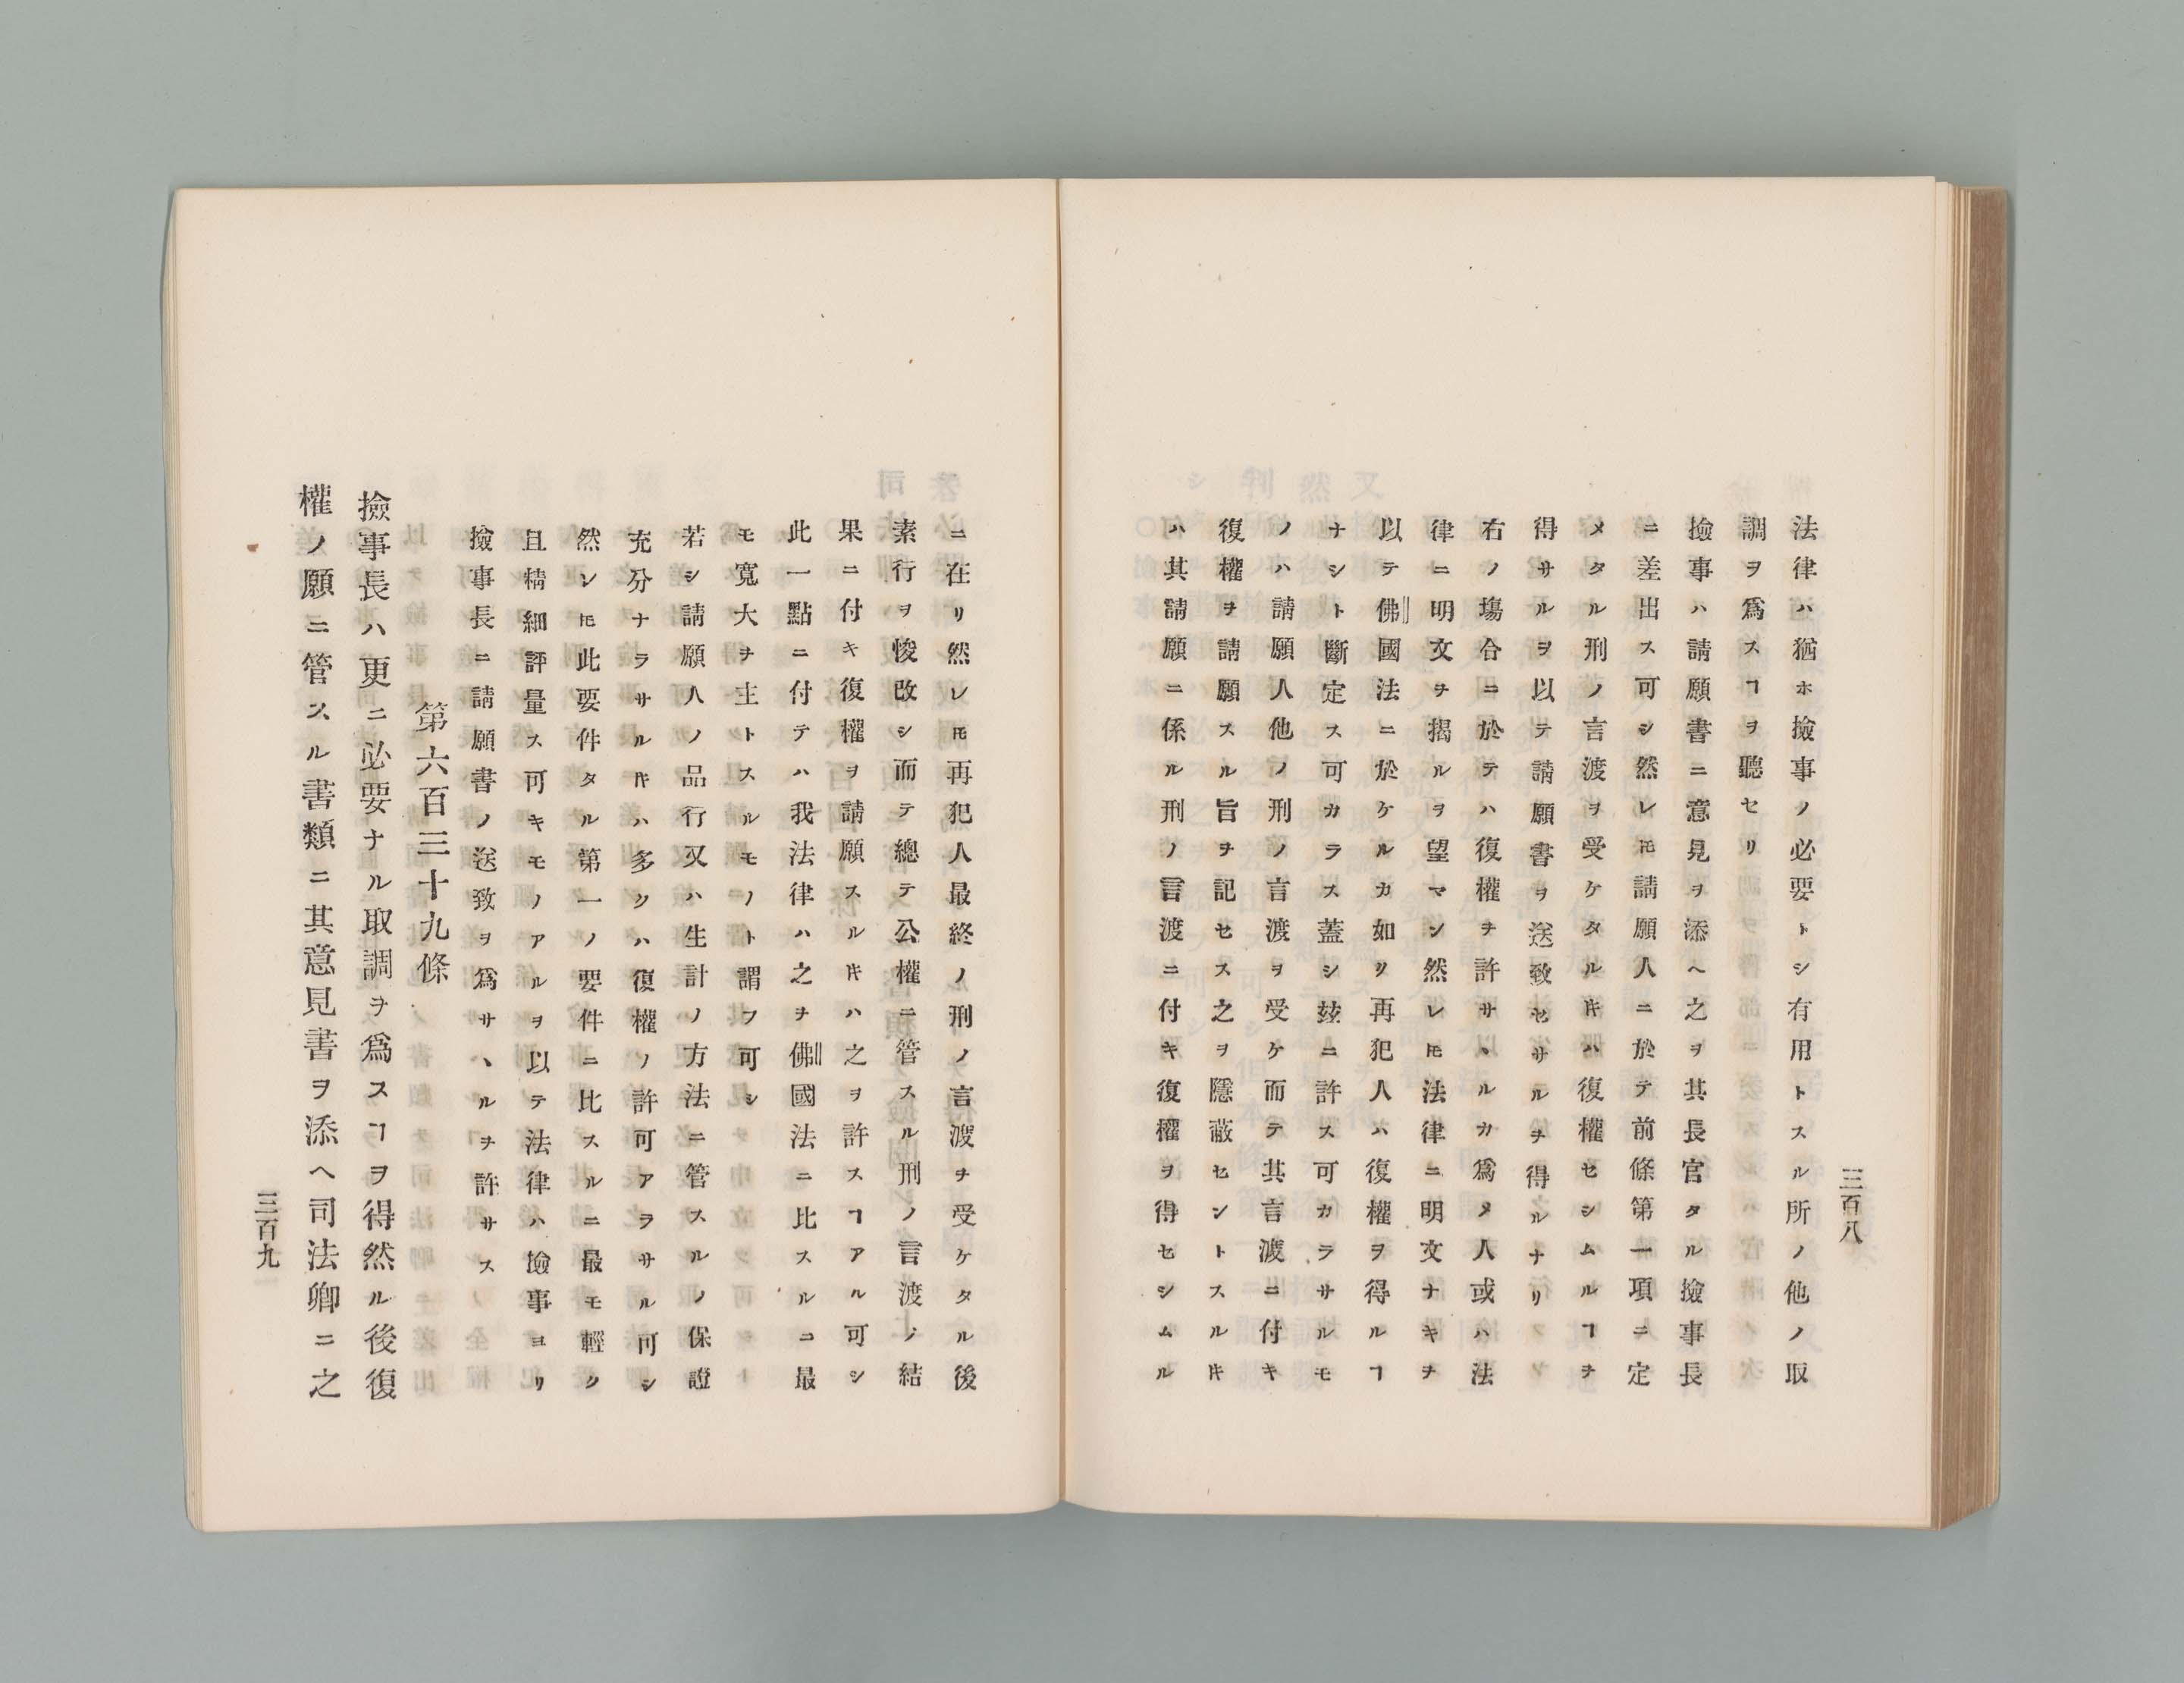 三百八
法律ハ猶ホ撿事ノ必要トシ有用トスル所ノ他ノ取
調ヲ爲スヿヲ聽セリ
撿事ハ請願書ニ意見ヲ添ヘ之ヲ其長官タル撿事長
ニ差出ス可シ然レㇳモ請願人ニ於テ前條第一項ニ定
メタル刑ノ言渡ヲ受ケタルㇳキハ復權セシムルヿヲ
得サルヲ以テ請願書ヲ送致セサルヲ得ルナリ
右ノ塲合ニ於テハ復權ヲ許サヽルカ爲メ人或ハ法
律ニ明文ヲ揭ルヲ望マン然レㇳモ法律ニ明文ナキヲ
以テ佛國法ニ於ケルカ如ク再犯人ハ復權ヲ得ルヿ
ナシト斷定ス可カラス蓋シ玆ニ許ス可カラサルモ
ノハ請願人他ノ刑ノ言渡ヲ受ケ而テ其言渡ニ付キ
復權ヲ請願スル旨ヲ記セス之ヲ隱蔽セントスルㇳキ
ハ其請願ニ係ル刑ノ言渡ニ付キ復權ヲ得セシムル
ニ在リ然レㇳモ再犯人最終ノ刑ノ言渡ヲ受ケタル後
素行ヲ悛改シ而テ總テ公權ニ管スル刑ノ言渡ノ結
果ニ付キ復權ヲ請願スルㇳキハ之ヲ許スヿアル可シ
此一點ニ付テハ我法律ハ之ヲ佛國法ニ比スルニ最
モ寬大ヲ主トスルモノト謂フ可シ
若シ請願人ノ品行又ハ生計ノ方法ニ管スルノ保證
充分ナラサルㇳキハ多クハ復權ノ許可アラサル可シ
然レㇳモ此要件タル第一ノ要件ニ比スルニ最モ輕ク
且精細評量ス可キモノアルヲ以テ法律ハ撿事ヨリ
撿事長ニ請願書ノ送致ヲ爲サヽルヲ許サス
第六百三十九條
撿事長ハ更ニ必要ナル取調ヲ爲スヿヲ得然ル後復
權ノ願ニ管スル書類ニ其意見書ヲ添ヘ司法卿ニ之
三百九